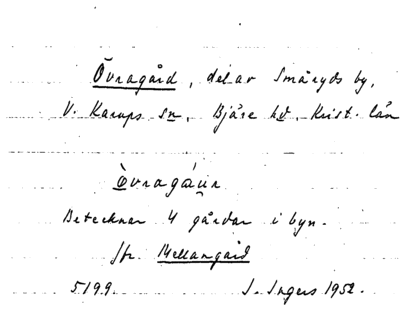 Övragård, del av Småryds by,
V. Karups sn, Bjäre hd, Krist. län
Òvragáu̯r
Betecknar 4 gårdar i byn.
Jfr. Mellangård
5199. I. Ingers 1952.